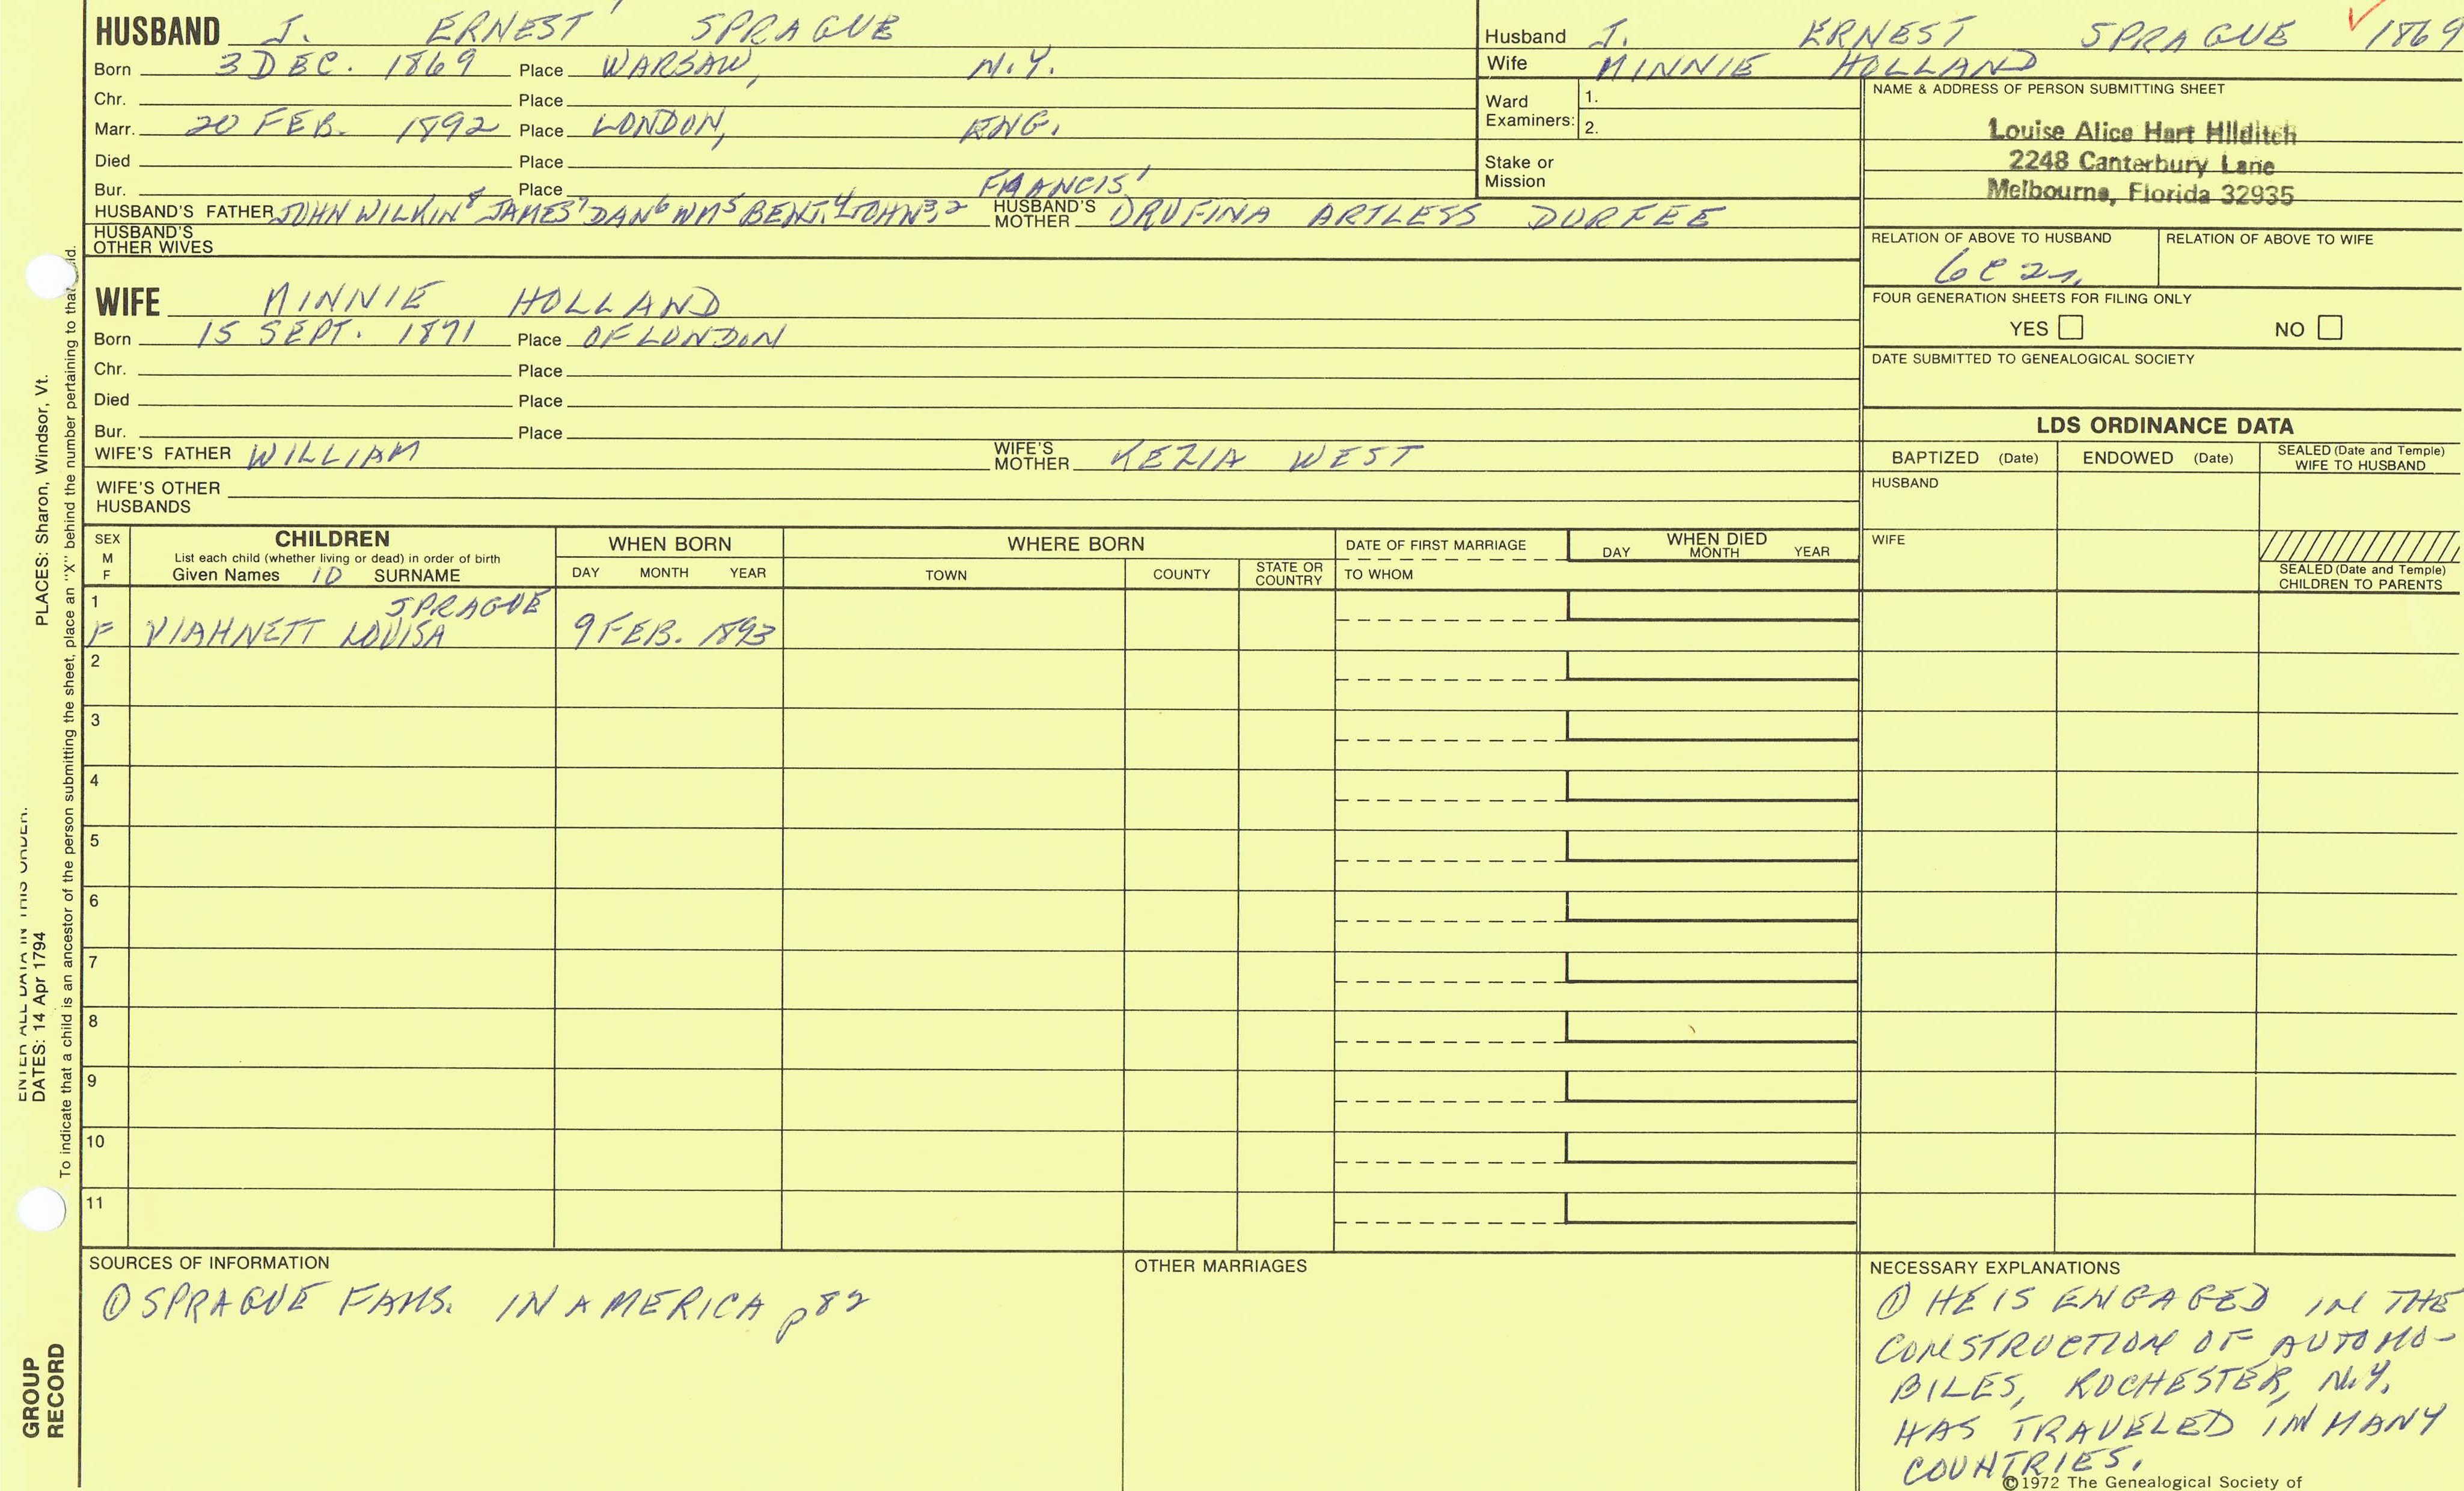 HUSBAND J. ERNEST SPRAGUE
Born 3 DEC. 1869 Place WARSAW, N.Y.
Chr. Place
Marr. 20 FEB. 1892 Place LONDON, ENG.
Died Place
Bur. Place
FRANCIS1
HUSBAND'S FATHER JOHN WILKIN8 JAMES7 DAN6 WM5 BENJ.4 JOHN3,2 HUSBAND'S MOTHER DRUFINA ARTLESS DURFEE
HUSBAND'S OTHER WIVES
WIFE MINNIE HOLLAND
Born 15 SEPT. 1871 Place OF LONDON
Chr. Place
Died Place
Bur. Place
WIFE'S FATHER WILLIAM WIFE'S MOTHER KEZIA WEST
WIFE'S OTHER HUSBANDS
Husband J. ERNEST SPRAGUE 1869
Wife MINNIE HOLLAND
Ward Examiners: 1.
2.
Stake or Mission
NAME & ADDRESS OF PERSON SUBMITTING SHEET
Louise Alice Hart Hilditch
2248 Canterbury Lane
Melbourne, Florida 32935
RELATION OF ABOVE TO HUSBAND RELATION OF ABOVE TO WIFE
6C 2r.
FOUR GENERATION SHEETS FOR FILING ONLY
YES NO
DATE SUBMITTED TO GENEALOGICAL SOCIETY
LDS ORDINANCE DATA
BAPTIZED (Date) ENDOWED (Date) SEALED (Date and Temple) WIFE TO HUSBAND
HUSBAND
WIFE
SEALED (Date and Temple) CHILDREN TO PARENTS
SEX M F
CHILDREN
List each child (whether living or dead) in order of birth
Given Names 10 SURNAME
WHEN BORN
DAY MONTH YEAR
WHERE BORN
TOWN COUNTY STATE OR COUNTRY
DATE OF FIRST MARRIAGE
TO WHOM
WHEN DIED
DAY MONTH YEAR
1 SPRAGUE
F VIAHNETT LOUISA 9 FEB. 1893
2
3
4
5
6
7
8
9
10
11
SOURCES OF INFORMATION
① SPRAGUE FAMS. IN AMERICA p82
OTHER MARRIAGES
NECESSARY EXPLANATIONS
① HE IS ENGAGED IN THE
CONSTRUCTION OF AUTOMO-
BILES, ROCHESTER, N.Y.
HAS TRAVELED IN MANY
COUNTRIES.
©1972 The Genealogical Society of
ENTER ALL DATA IN THIS ORDER.
DATES: 14 Apr 1794
PLACES: Sharon, Windsor, Vt.
To indicate that a child is an ancestor of the person submitting the sheet, place an "X" behind the number pertaining to that child.
GROUP
RECORD